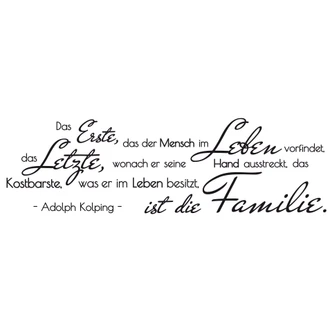 Das Erste, das der Mensch im Leben vorfindet,
das Letzte, wonach er seine Hand ausstreckt, das
Kostbarste, was er im Leben besitzt,
ist die Familie.
- Adolph Kolping -